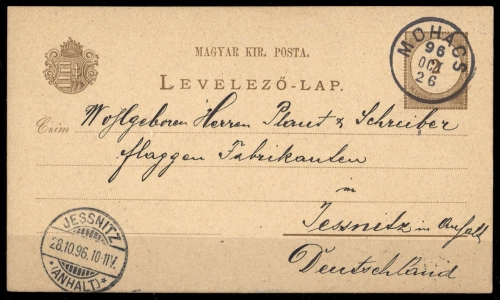 MAGYAR KIR. POSTA.
LEVELEZŐ-LAP.
MOHÁCS
96
OCT
26
Czim Wohlgeboren Herren Plaut & Schreiber
Flaggen Fabrikanten
in
Jessnitz in Anhalt
Deutschland
JESSNITZ
28.10.96.10-11V.
*(ANHALT)*